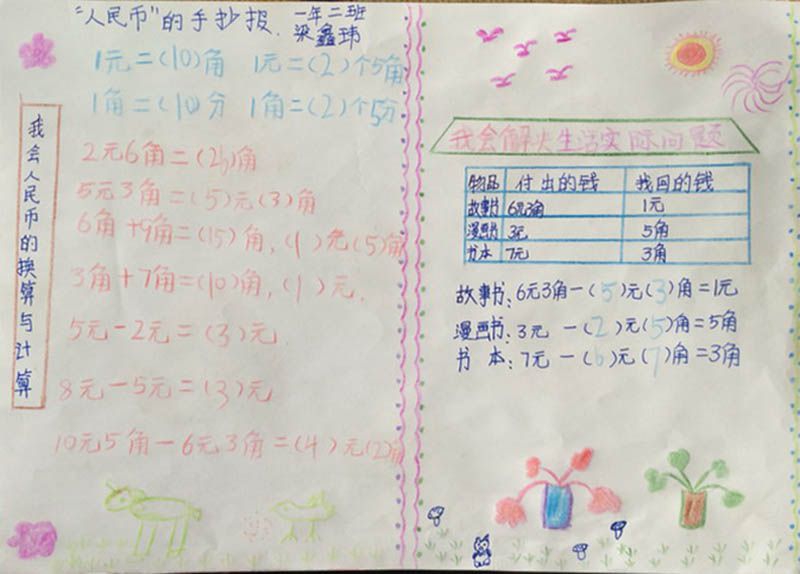 “人民币”的手抄报.
一年二班
梁鑫玮
1元=(10)角 1元=(2)个5角
1角=(10)分 1角=(2)个5分
我会人民币的换算与计算
2元6角=(26)角
5元3角=(5)元(3)角
6角+9角=(15)角,(1)元(5)角
3角+7角=(10)角,(1)元.
5元-2元=(3)元
8元-5元=(3)元
10元5角-6元3角=(4)元(2)角
我会解决生活实际问题
物品 付出的钱 找回的钱
故事书 6元3角 1元
漫画书 3元 5角
书本 7元 3角
故事书:6元3角-(5)元(3)角=1元
漫画书:3元-(2)元(5)角=5角
书本:7元-(6)元(7)角=3角